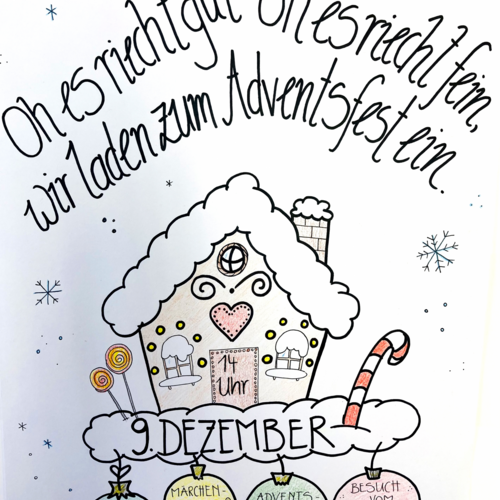 Oh es riecht gut oh es riecht fein,
wir laden zum Adventsfest ein.
14
Uhr
9. DEZEMBER
MÄRCHEN-
ADVENTS-
BESUCH
VOM